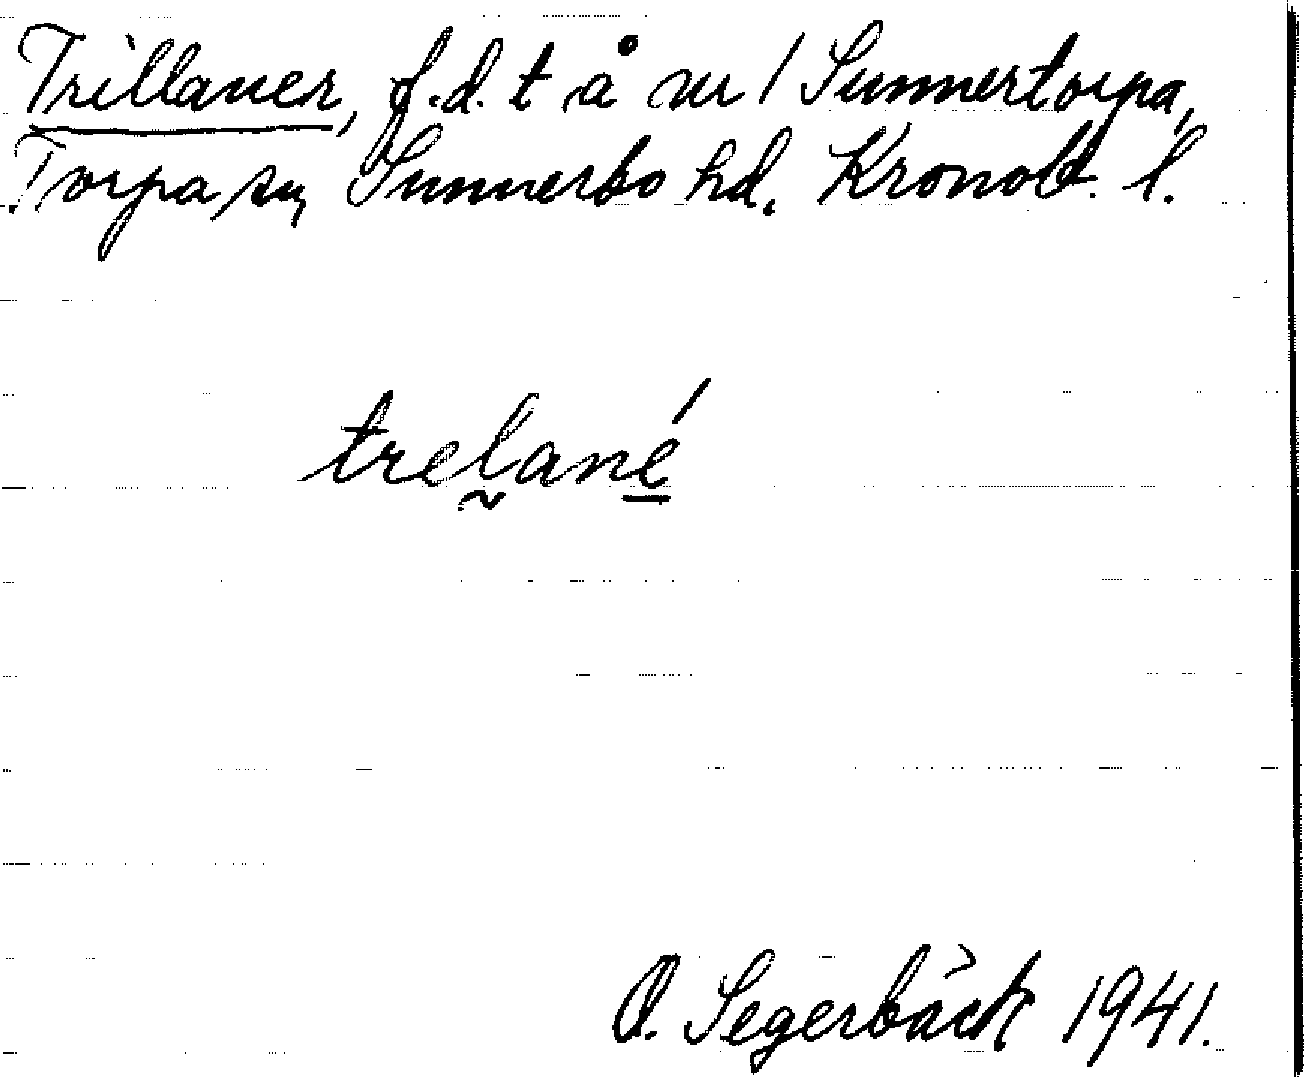 Trillaner, f.d. t å nr 1 Sunnertorpa,
Torpa sn, Sunnerbo hd. Kronob. l.
trelané
O. Segerbäck 1941.